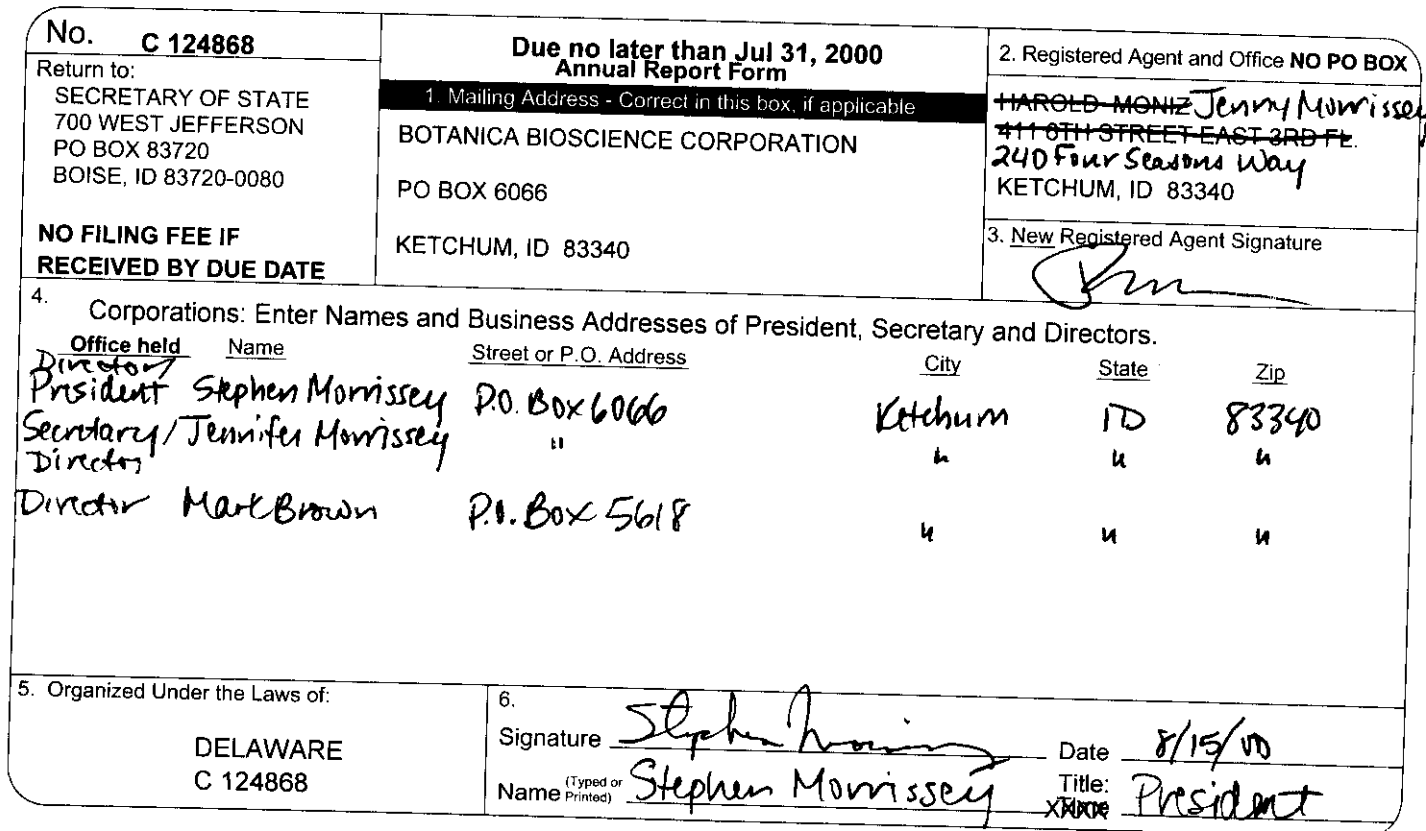 No. C 124868
Return to:
SECRETARY OF STATE
700 WEST JEFFERSON
PO BOX 83720
BOISE, ID 83720-0080
NO FILING FEE IF
RECEIVED BY DUE DATE
Due no later than Jul 31, 2000
Annual Report Form
1. Mailing Address - Correct in this box, if applicable
BOTANICA BIOSCIENCE CORPORATION
PO BOX 6066
KETCHUM, ID 83340
2. Registered Agent and Office NO PO BOX
HAROLD MONIZ Jenny Morrissey
411 8TH STREET EAST 3RD FL.
240 Four Seasons Way
KETCHUM, ID 83340
3. New Registered Agent Signature
4. Corporations: Enter Names and Business Addresses of President, Secretary and Directors.
Office held Name Street or P.O. Address City State Zip
Director/
President Stephen Morrissey P.O. Box 6066 Ketchum ID 83340
Secretary/ Jennifer Morrissey " " " "
Director
Director Mark Brown P.O. Box 5618 " " "
5. Organized Under the Laws of:
DELAWARE
C 124868
6.
Signature Stephen Morrissey Date 8/15/00
Name (Typed or Printed) Stephen Morrissey Title: President